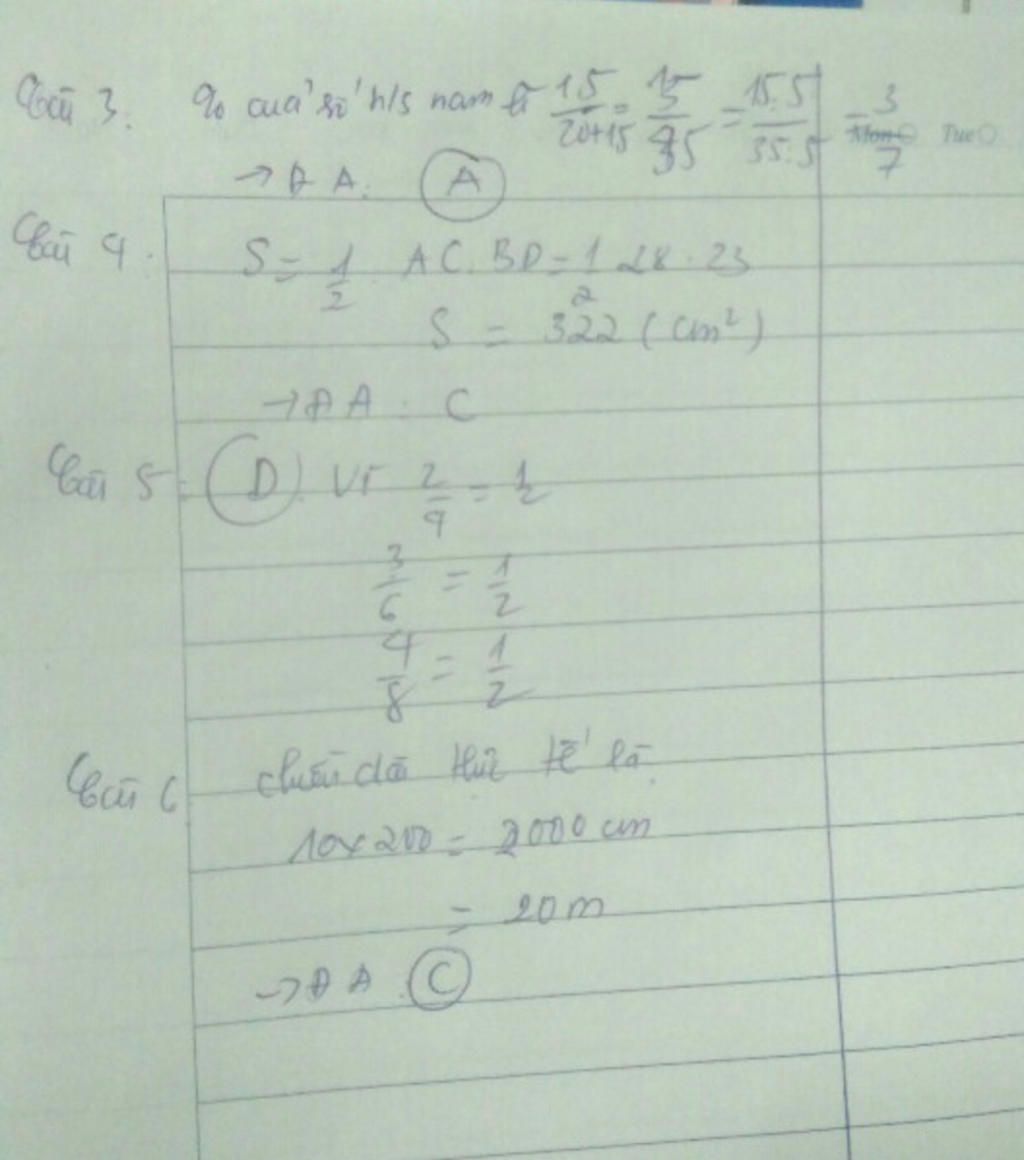 Câu 3. % của số h/s nam là 15/20+15 = 15/35 = 15:5/35:5 = 3/7
Mon Tue
→ ĐA: A
Câu 4. S = 1/2 AC.BD = 1/2 28.23
S = 322 (cm²)
→ ĐA: C
Câu 5: D. Vì 2/4 = 1/2
3/6 = 1/2
4/8 = 1/2
Câu 6 chiều dài thực tế là
10x200 = 2000 cm
= 20 m
→ ĐA. C